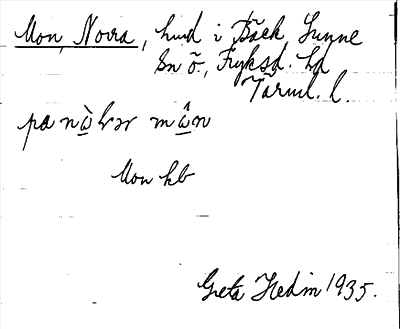 Mon, Norra, hmd i Bäck, Sunne
sn ö., Fryksd. hd
Värml. l.
pa nὼrər mω̂n
Mon kb
Greta Hedin 1935.